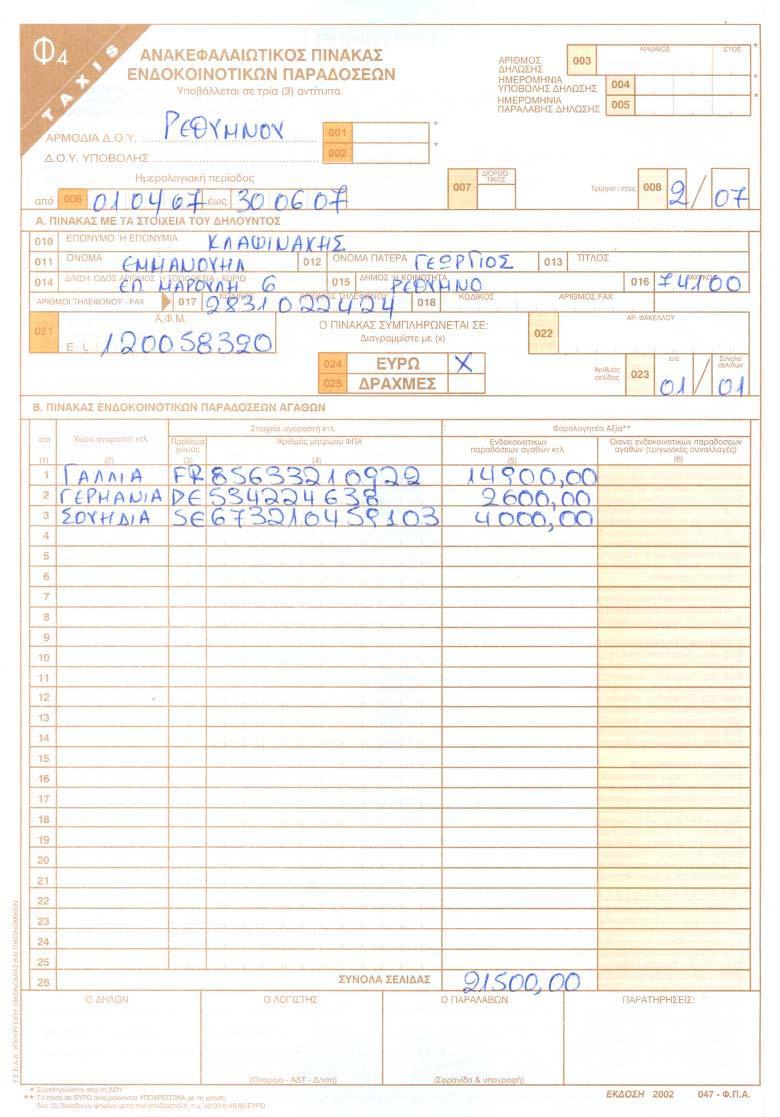 Φ4
TAXIS
ΑΝΑΚΕΦΑΛΑΙΩΤΙΚΟΣ ΠΙΝΑΚΑΣ
ΕΝΔΟΚΟΙΝΟΤΙΚΩΝ ΠΑΡΑΔΟΣΕΩΝ
Υποβάλλεται σε τρία (3) αντίτυπα.
ΑΡΙΘΜΟΣ ΔΗΛΩΣΗΣ 003 ΑΡΙΘΜΟΣ ΕΤΟΣ *
ΗΜΕΡΟΜΗΝΙΑ ΥΠΟΒΟΛΗΣ ΔΗΛΩΣΗΣ 004 *
ΗΜΕΡΟΜΗΝΙΑ ΠΑΡΑΛΑΒΗΣ ΔΗΛΩΣΗΣ 005 *
ΑΡΜΟΔΙΑ Δ.Ο.Υ. ΡΕΘΥΜΝΟΥ 001 *
Δ.Ο.Υ. ΥΠΟΒΟΛΗΣ 002 *
Ημερολογιακή περίοδος
από 006 010407 έως 300607
007 ΔΙΟΡΘΩΤΙΚΟΣ
Τρίμηνο / έτος 008 2/07
Α. ΠΙΝΑΚΑΣ ΜΕ ΤΑ ΣΤΟΙΧΕΙΑ ΤΟΥ ΔΗΛΟΥΝΤΟΣ
010 ΕΠΩΝΥΜΟ Ή ΕΠΩΝΥΜΙΑ ΚΛΑΨΙΝΑΚΗΣ
011 ΟΝΟΜΑ ΕΜΜΑΝΟΥΗΛ 012 ΟΝΟΜΑ ΠΑΤΕΡΑ ΓΕΩΡΓΙΟΣ 013 ΤΙΤΛΟΣ
014 Δ/ΝΣΗ: ΟΔΟΣ ΑΡΙΘΜΟΣ Ή ΤΟΠΟΘΕΣΙΑ - ΧΩΡΙΟ ΕΠ ΜΑΡΟΥΛΗ 6 015 ΔΗΜΟΣ Ή ΚΟΙΝΟΤΗΤΑ ΡΕΘΥΜΝΟ 016 74100
ΑΡΙΘΜΟΙ ΤΗΛΕΦΩΝΟΥ - FAX 017 ΚΩΔΙΚΟΣ ΑΡΙΘΜΟΣ ΤΗΛΕΦΩΝΟΥ 2831022424 018 ΚΩΔΙΚΟΣ ΑΡΙΘΜΟΣ FAX
021 Α.Φ.Μ.
E L 120058390
Ο ΠΙΝΑΚΑΣ ΣΥΜΠΛΗΡΩΝΕΤΑΙ ΣΕ:
Διαγραμμίστε με (x)
022 ΑΡ. ΦΑΚΕΛΛΟΥ
024 ΕΥΡΩ X
025 ΔΡΑΧΜΕΣ
Αριθμός σελίδας 023 α/α Σύνολο σελίδων
01/01
Β. ΠΙΝΑΚΑΣ ΕΝΔΟΚΟΙΝΟΤΙΚΩΝ ΠΑΡΑΔΟΣΕΩΝ ΑΓΑΘΩΝ
Στοιχεία αγοραστή κτλ. Φορολογητέα Αξία**
α/α Χώρα αγοραστή κτλ. Πρόθεμα χώρας Αριθμός μητρώου ΦΠΑ Ενδοκοινοτικών παραδόσεων αγαθών κτλ. Οιονεί ενδοκοινοτικών παραδόσεων αγαθών (τριγωνικές συναλλαγές)
(1) (2) (3) (4) (5) (6)
1 ΓΑΛΛΙΑ FR 85633210922 14900,00
2 ΓΕΡΜΑΝΙΑ DE 534224638 2600,00
3 ΣΟΥΗΔΙΑ SE 673210459103 4000,00
4
5
6
7
8
9
10
11
12
13
14
15
16
17
18
19
20
21
22
23
24
25
26 ΣΥΝΟΛΑ ΣΕΛΙΔΑΣ 21500,00
Ο ΔΗΛΩΝ Ο ΛΟΓΙΣΤΗΣ Ο ΠΑΡΑΛΑΒΩΝ ΠΑΡΑΤΗΡΗΣΕΙΣ:
(Ον/μο - ΑΔΤ - Δ/νση) (Σφραγίδα & υπογραφή)
* Συμπληρώνεται από τη ΔΟΥ
** Τα ποσά σε ΕΥΡΩ αναγράφονται ΥΠΟΧΡΕΩΤΙΚΑ με τη χρήση
δύο (2) δεκαδικών ψηφίων μετά την υποδιαστολή
ΕΚΔΟΣΗ 2002 047 - Φ.Π.Α.